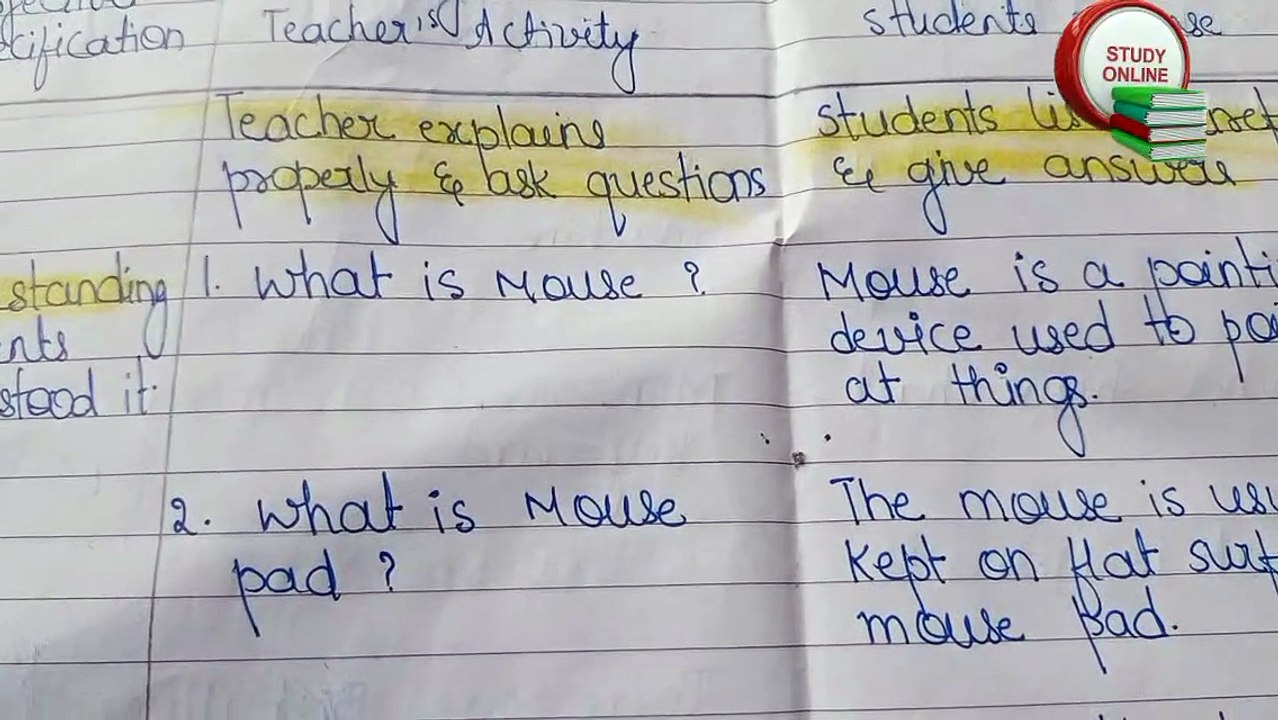 cification Teacher's Activity students se
STUDY
ONLINE
Teacher explains students
properly & ask questions & give answers
standing 1. What is Mouse ? Mouse is a pointi
nts device used to poi
stood it. at things.
2. What is Mouse The mouse is usu
pad ? Kept on flat surf
mouse pad.